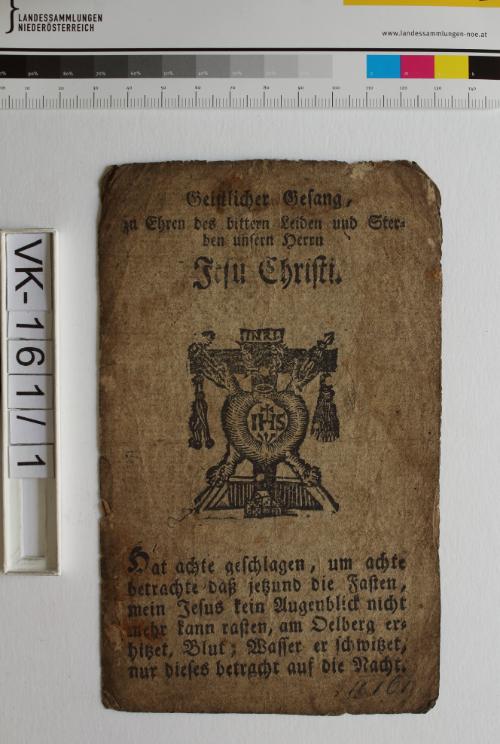 LANDESSAMMLUNGEN
NIEDERÖSTERREICH
www.landessammlungen-noe.at
VK-161/1
Geistlicher Gesang,
zu Ehren des bittern Leiden und Ster-
ben unsern Herrn
Jesu Christi.
INRI
IHS
Hat achte geschlagen, um achte
betrachte daß jetzund die Fasten,
mein Jesus kein Augenblick nicht
mehr kann rasten, am Oelberg er-
hitzet, Blut; Wasser er schwitzet,
nur dieses betracht auf die Nacht.